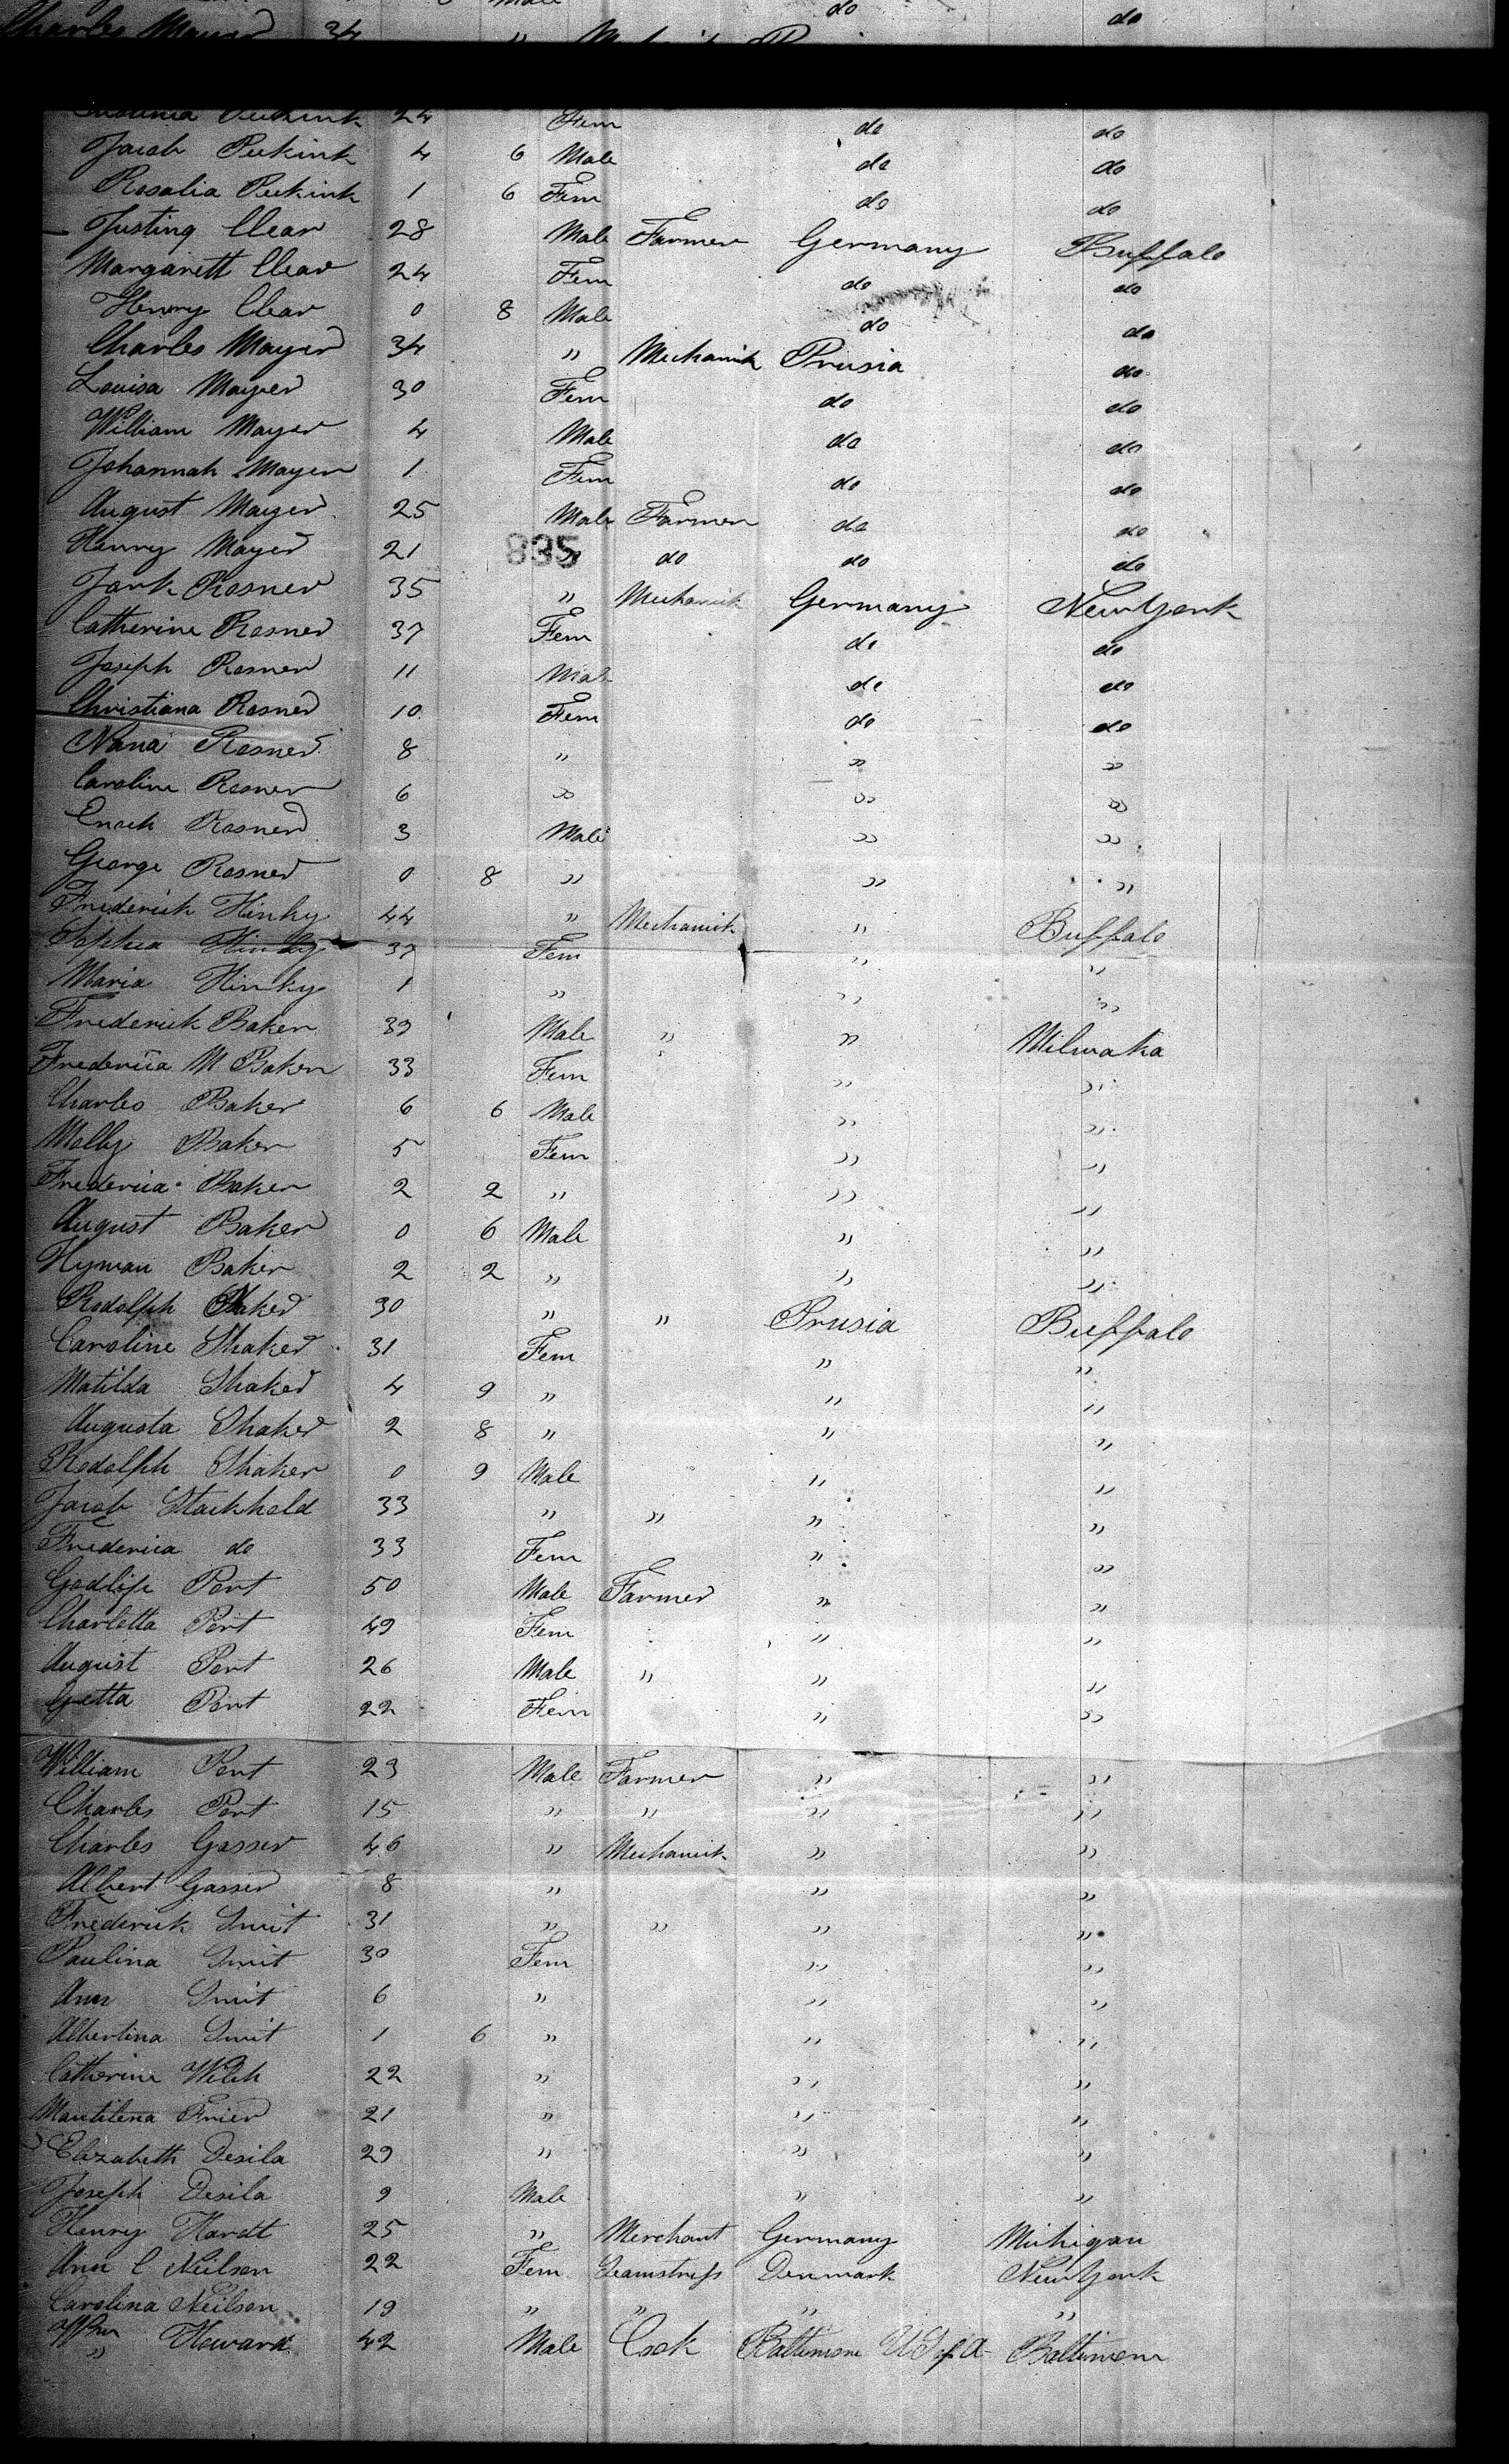 Male do do
Charles Mayer 34 "
Peekink 24 Fem do do
Jacob Peekink 4 6 Male do do
Rosalia Peekink 1 6 Fem do do
Justing Clear 28 Male Farmer Germany Buffalo
Margarett Clear 24 Fem do do
Henry Clear 0 8 Male do do
Charles Mayer 34 " Mechanick Prusia do
Louisa Mayer 30 Fem do do
William Mayer 4 Male do do
Johannah Mayer 1 Fem do do
August Mayer 25 Male Farmer do do
Henry Mayer 21 835 " do do do
Jark Rosner 35 " Mechanick Germany New York
Catherine Rosner 37 Fem do do
Joseph Rosner 11 Male do do
Christiana Rosner 10 Fem do do
Nana Rosner 8 " " "
Caroline Rosner 6 " " "
Enoch Rosner 3 Male " "
George Rosner 0 8 " " "
Frederick Hinky 44 " Mechanick " Buffalo
Sophia Hinky 37 Fem " "
Maria Hinky 1 " " "
Frederick Baker 39 Male " " Milwaka
Fredericia M Baker 33 Fem " "
Charles Baker 6 6 Male " "
Molly Baker 5 Fem " "
Fredericia Baker 2 2 " " "
August Baker 0 6 Male " "
Hyman Baker 2 2 " " "
Rodolph Shaker 30 " " Prusia Buffalo
Caroline Shaker 31 Fem " "
Matilda Shaker 4 9 " " "
Augusta Shaker 2 8 " " "
Rodolph Shaker 0 9 Male " "
Jacob Stackhold 33 " " " "
Fredericia do 33 Fem " "
Godlip Port 50 Male Farmer " "
Charlotta Port 49 Fem " "
August Port 26 Male " " "
Getta Port 22 Fem " "
William Port 23 Male Farmer " "
Charles Port 15 " " " "
Charles Gasser 46 " Mechanick " "
Albert Gasser 8 " " "
Frederick Smit 31 " " " "
Paulina Smit 30 Fem " "
Ann Smit 6 " " "
Albertina Smit 1 6 " " "
Catherine Welch 22 " " "
Mantilena Frier 21 " " "
Elizabeth Desila 29 " " "
Joseph Desila 9 Male " "
Henry Hardt 25 " Merchant Germany Michigan
Ann C Neilson 22 Fem Seamstress Denmark New York
Carolina Neilson 19 " " " "
Wm Howard 42 Male Cook Baltimore U S of A Baltimore
"